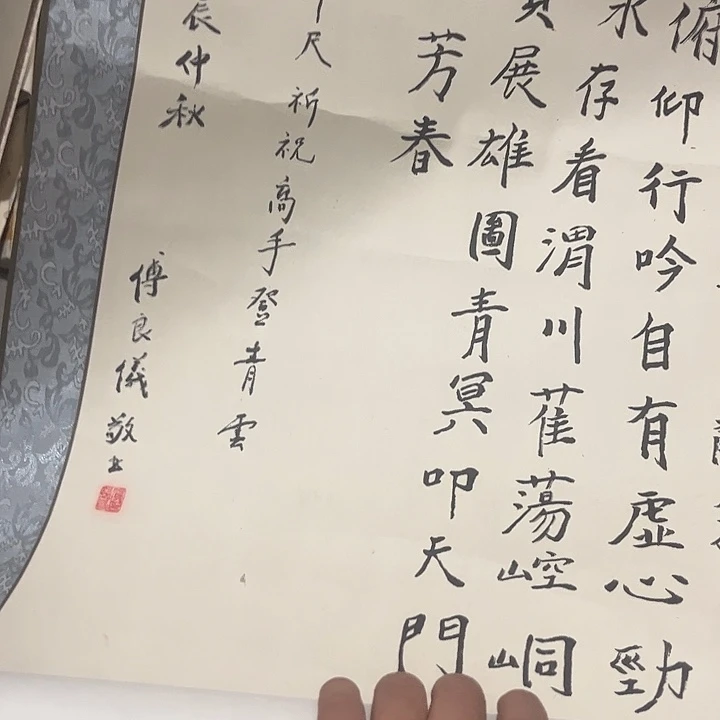 俯仰行吟自有虛心勁
永存看渭川萑蕩崆峒
展雄圖青冥叩天門
芳春
尺祈祝高手登青雲
辰仲秋 傅良儀敬书